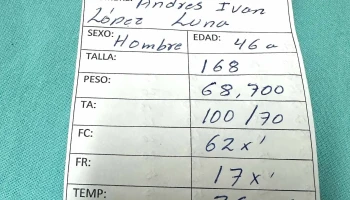 Andres Ivan
López Luna
SEXO: Hombre EDAD: 46 a
TALLA: 168
PESO: 68,700
TA: 100/70
FC: 62 x'
FR: 17 x'
TEMP: